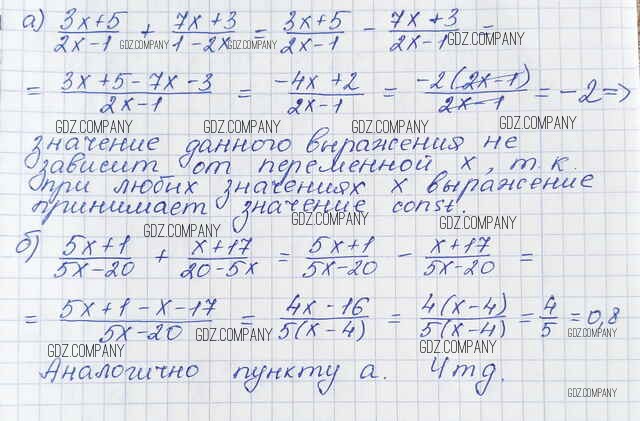 а) (3x+5)/(2x-1) + (7x+3)/(1-2x) = (3x+5)/(2x-1) - (7x+3)/(2x-1) =
GDZ.COMPANY GDZ.COMPANY GDZ.COMPANY
= (3x+5-7x-3)/(2x-1) = (-4x+2)/(2x-1) = (-2(2x-1))/(2x-1) = -2 =>
GDZ.COMPANY GDZ.COMPANY GDZ.COMPANY GDZ.COMPANY
значение данного выражения не
зависит от переменной x, т.к.
при любых значениях x выражение
принимает значение const.
GDZ.COMPANY GDZ.COMPANY GDZ.COMPANY
б) (5x+1)/(5x-20) + (x+17)/(20-5x) = (5x+1)/(5x-20) - (x+17)/(5x-20) =
= (5x+1-x-17)/(5x-20) = (4x-16)/(5(x-4)) = (4(x-4))/(5(x-4)) = 4/5 = 0,8
GDZ.COMPANY GDZ.COMPANY GDZ.COMPANY GDZ.COMPANY
Аналогично пункту а. Чтд.
GDZ.COMPANY